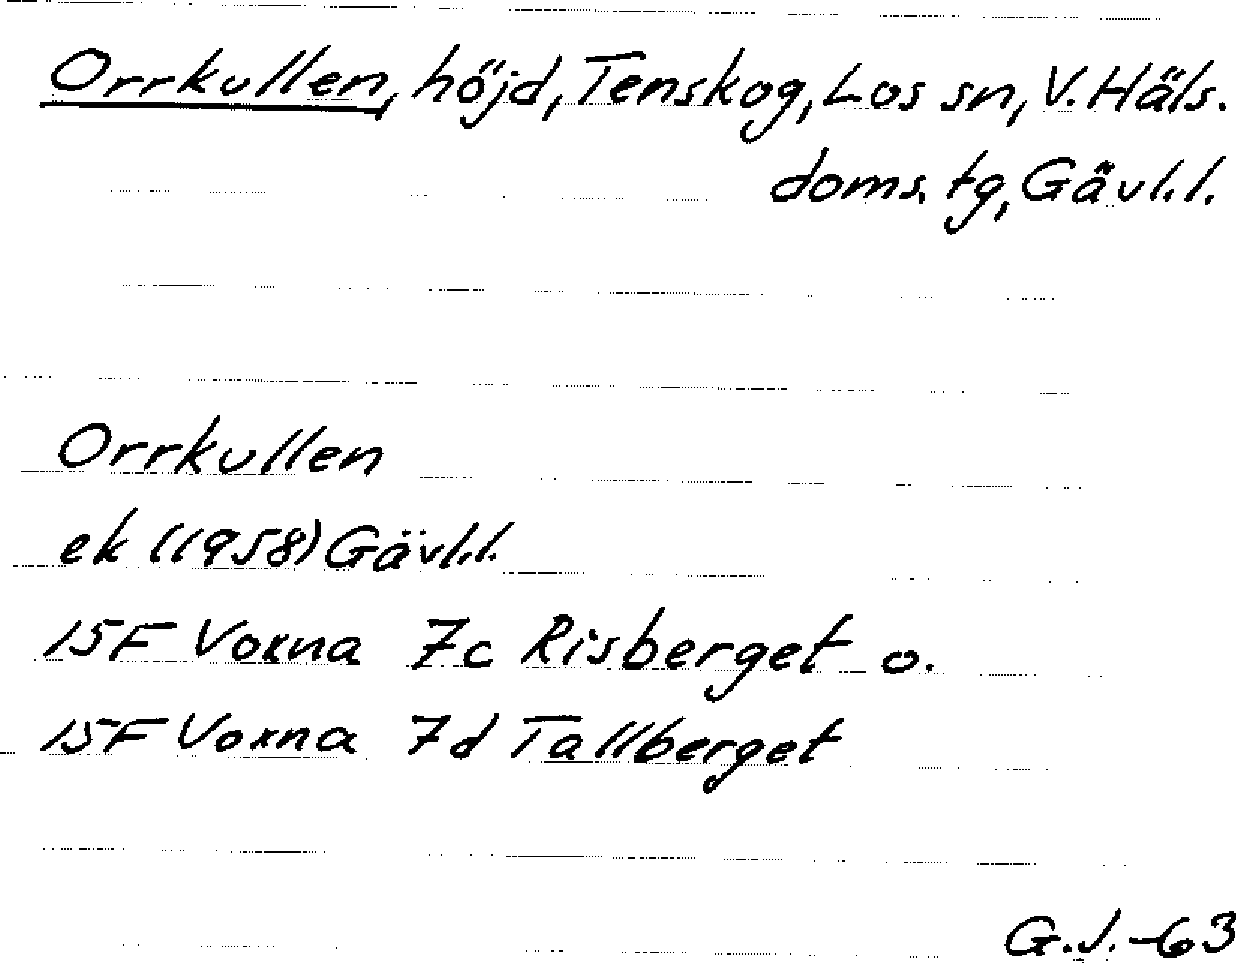 Orrkullen, höjd, Tenskog, Los sn, V. Häls.
doms. tg, Gävl.l.
Orrkullen
ek (1958) Gävl.l.
15F Voxna 7c Risberget o.
15F Voxna 7d Tallberget
G.J.-63